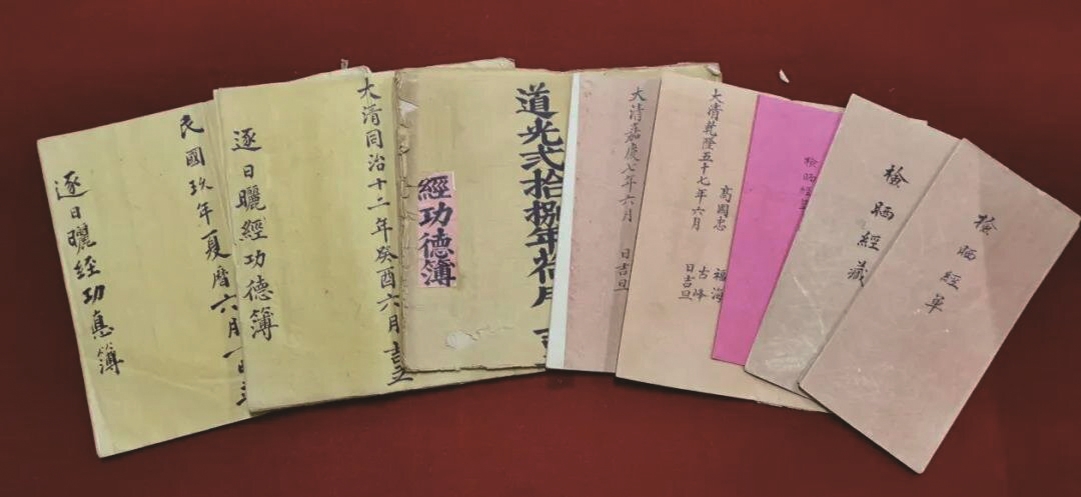 檢晒經单
檢晒經藏
檢晒經
福海
高國忠
古峰
大清乾隆五十七年六月
日吉旦
大清嘉慶七年六月
日吉旦
道光弍拾捌年荷月 吉
經功德簿
大清同治十二年癸酉六月吉立
逐日曬經功德簿
民國玖年夏曆六月一日立
逐日曬經功惪簿